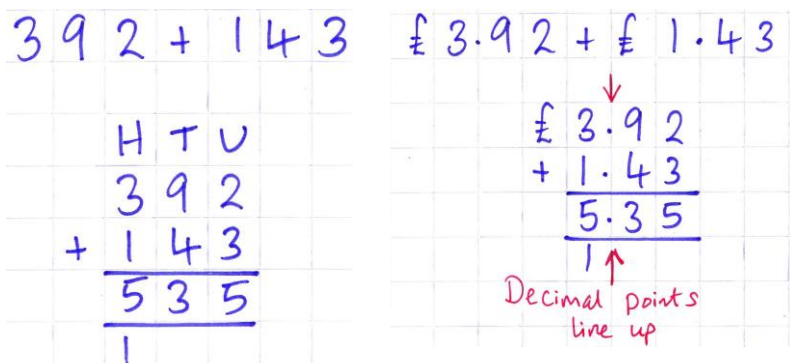 392 + 143
H T U
392
+ 143
535
1
£3.92 + £1.43
£3.92
+ 1.43
5.35
1
Decimal points
line up